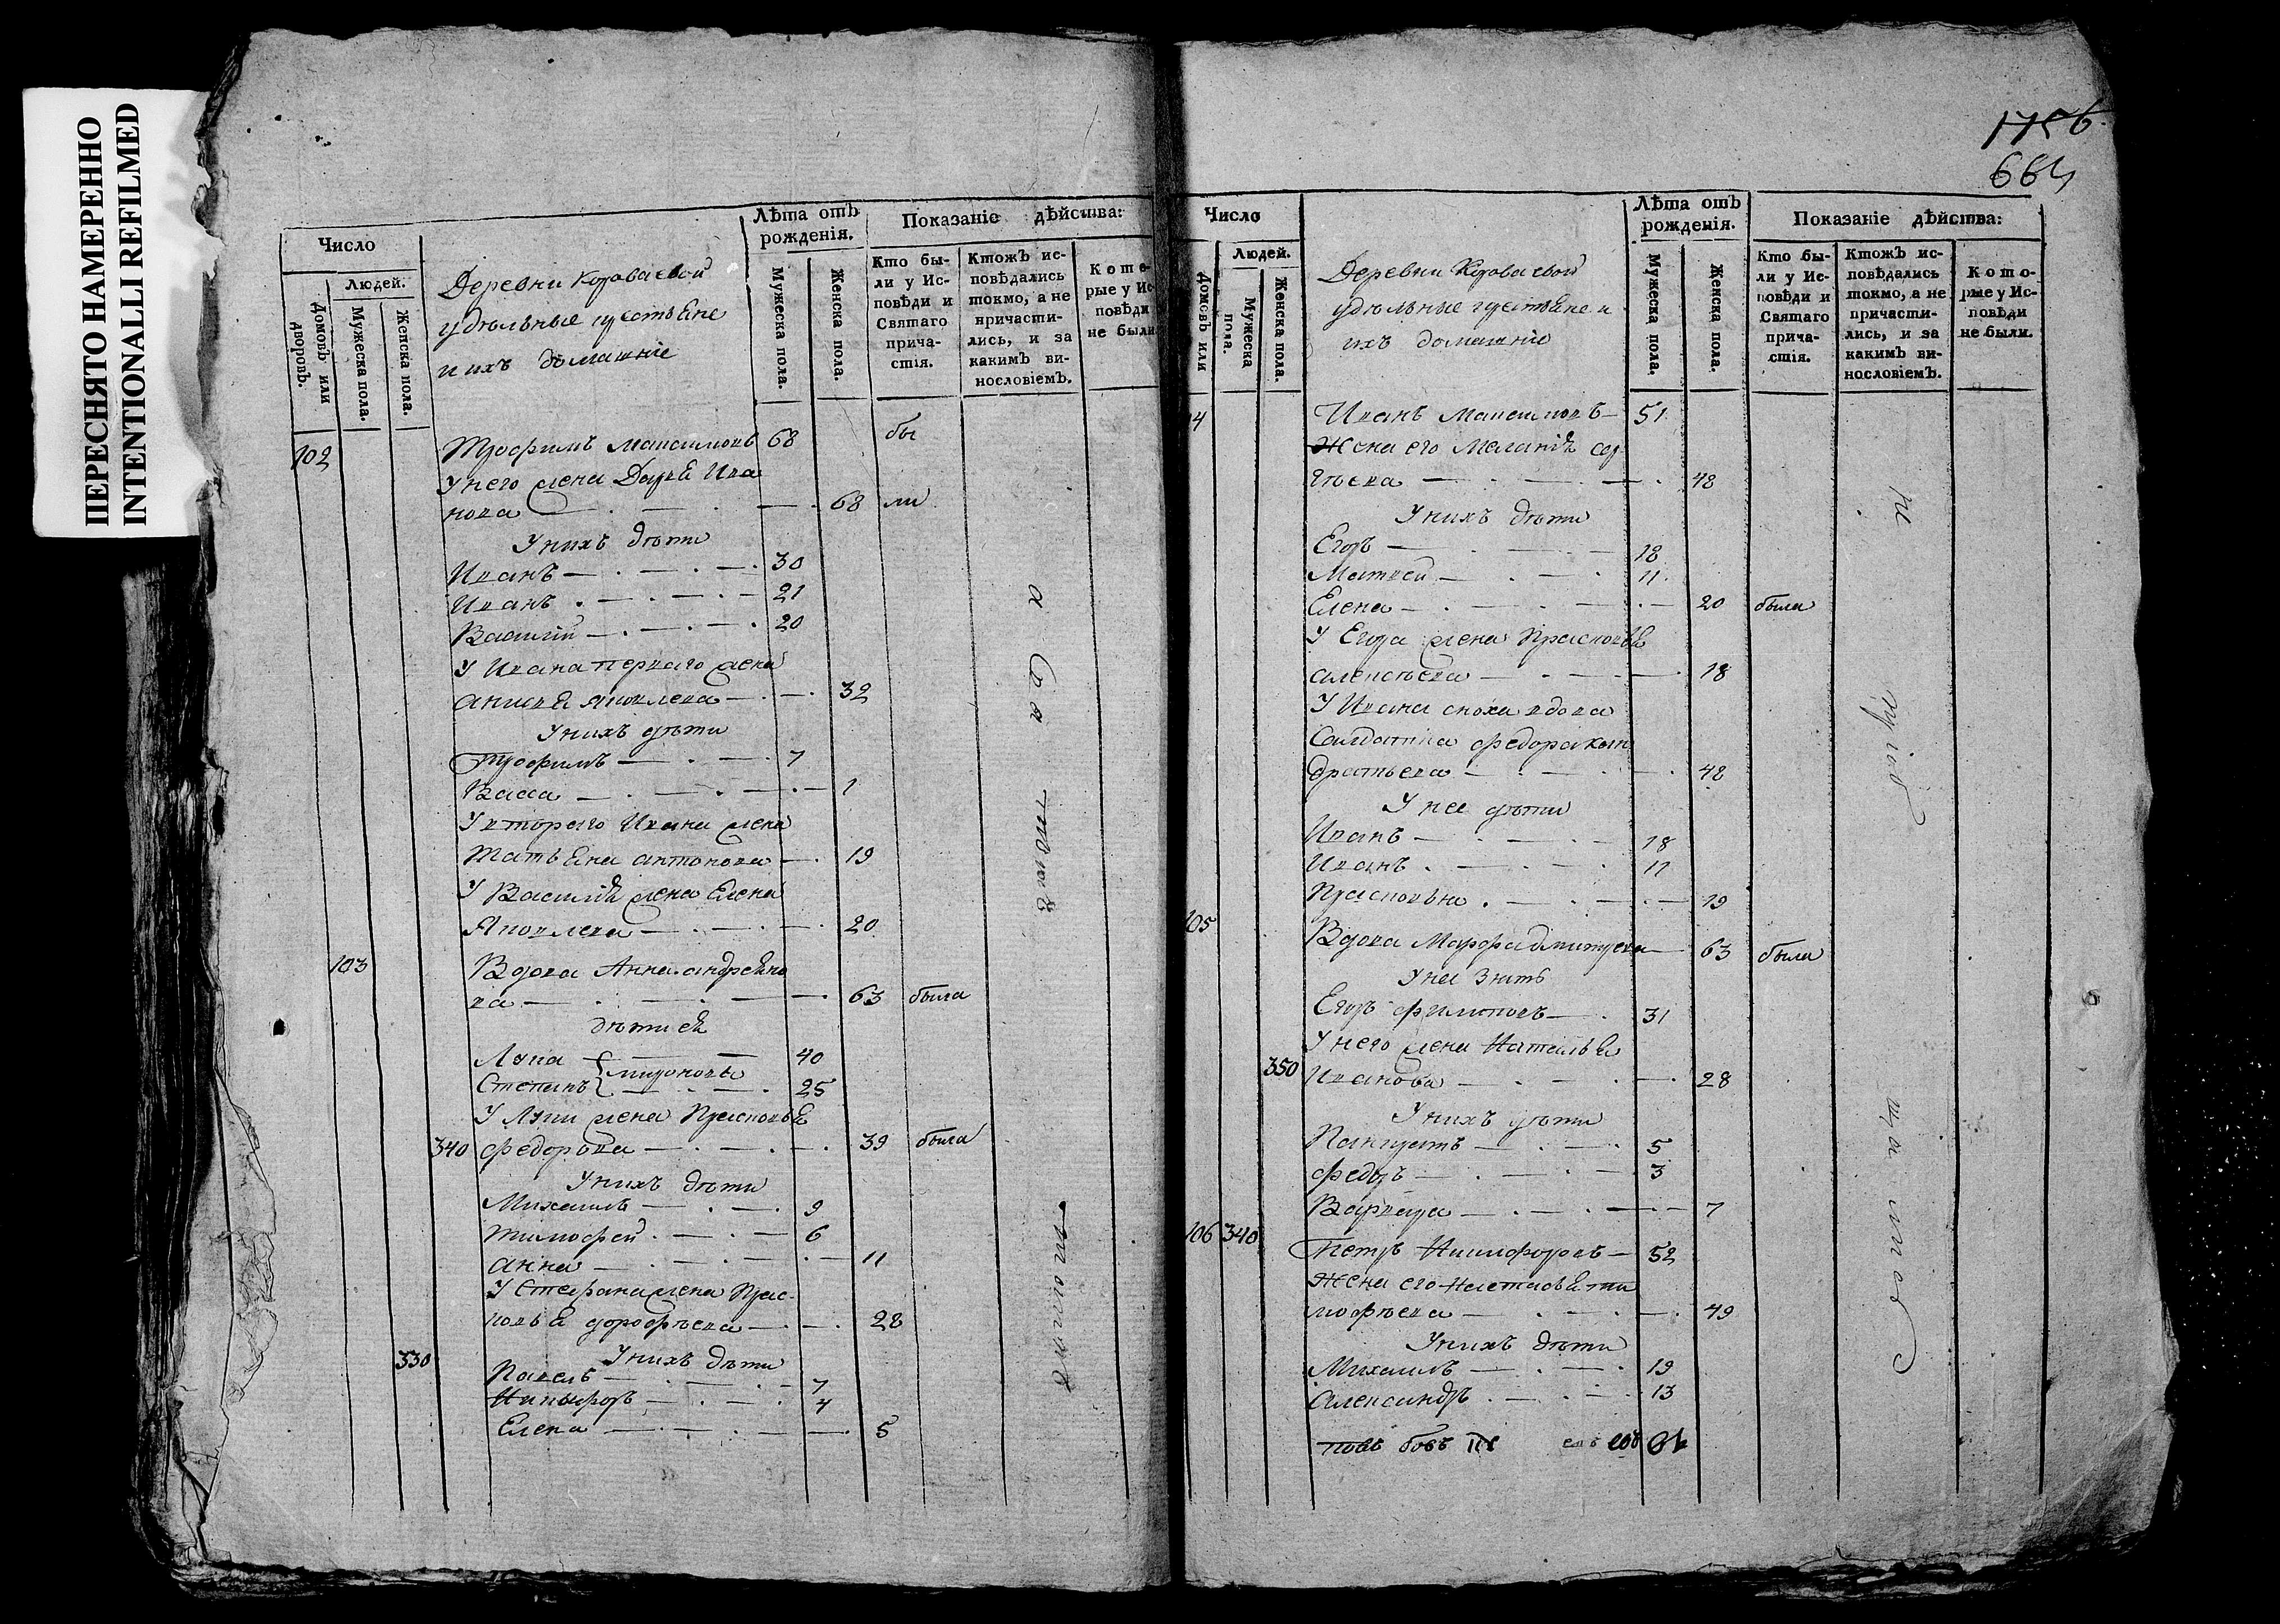 ПЕРЕСНЯТО НАМЕРЕННО
INTENTIONALLI REFILMED
Число
Людей.
Домовъ или дворовъ.
Мужеска пола.
Женска пола.
Деревни Короваевой
удѣльные крестьяне
и ихъ домашніе
Лѣта отъ рожденія.
Мужеска пола.
Женска пола.
Показаніе дѣйства:
Кто были у Исповѣди и Святаго причастія.
Ктожъ исповѣдались токмо, а не причастились, и за какимъ винословіемъ.
Которые у Исповѣди не были
102 Трофимъ Максимовъ 68 бы
У него жена Дарья Ива
нова 68 ли
У нихъ дѣти
Иванъ 30
Иванъ 21
Василій 20
У Ивана перваго жена
Анисья Яковлева 32
У нихъ дѣти
Трофимъ 7
Васса 1
У втораго Ивана жена
Татьяна Антонова 19
У Василія жена Елена
Яковлева 20
103 Вдова Анна Андреяно
ва 63 была
Дѣти ея
Лупа 40
Мироновы
Степанъ 25
У Лупи жена Прасковья
340 Федорова 39 была
У нихъ дѣти
Михаилъ 9
Тимофей 6
Анна 11
У Стефана жена Прас-
ковья Дорофѣева 28
У нихъ дѣти
330 Павелъ 7
Никифоръ 4
Елена 5
1756
664
Число
Людей.
Домовъ или
Мужеска пола.
Женска пола.
Деревни Короваевой
удѣльные крестьяне и
ихъ домашніе
Лѣта отъ рожденія.
Мужеска пола.
Женска пола.
Показаніе дѣйства:
Кто были у Исповѣди и Святаго причастія.
Ктожъ исповѣдались токмо, а не причастились, и за какимъ винословіемъ.
Которые у Исповѣди не были.
4 Иванъ Максимовъ 51
Жена его Меланія Сер
гѣева 48
У нихъ дѣти
Егоръ 18
Матвей 11
Елена 20 была
У Егора жена Прасковья
Алексѣева 18
У Ивана сноха вдова
Салдатка Федора Кон
дратьева 48
У нее дѣти
Иванъ 18
Иванъ 11
Прасковья 19
105 Вдова Марфа Дмитрева 63 была
У нея зять
Егоръ Филиповъ 31
У него жена Наталья
350 Иванова 28
У нихъ дѣти
Панкратъ 5
Федоръ 3
Варвара 7
106 340 Петръ Никифоровъ 52
Жена его Настасья Ти
мофѣева 49
У нихъ дѣти
Михаилъ 19
Александръ 13